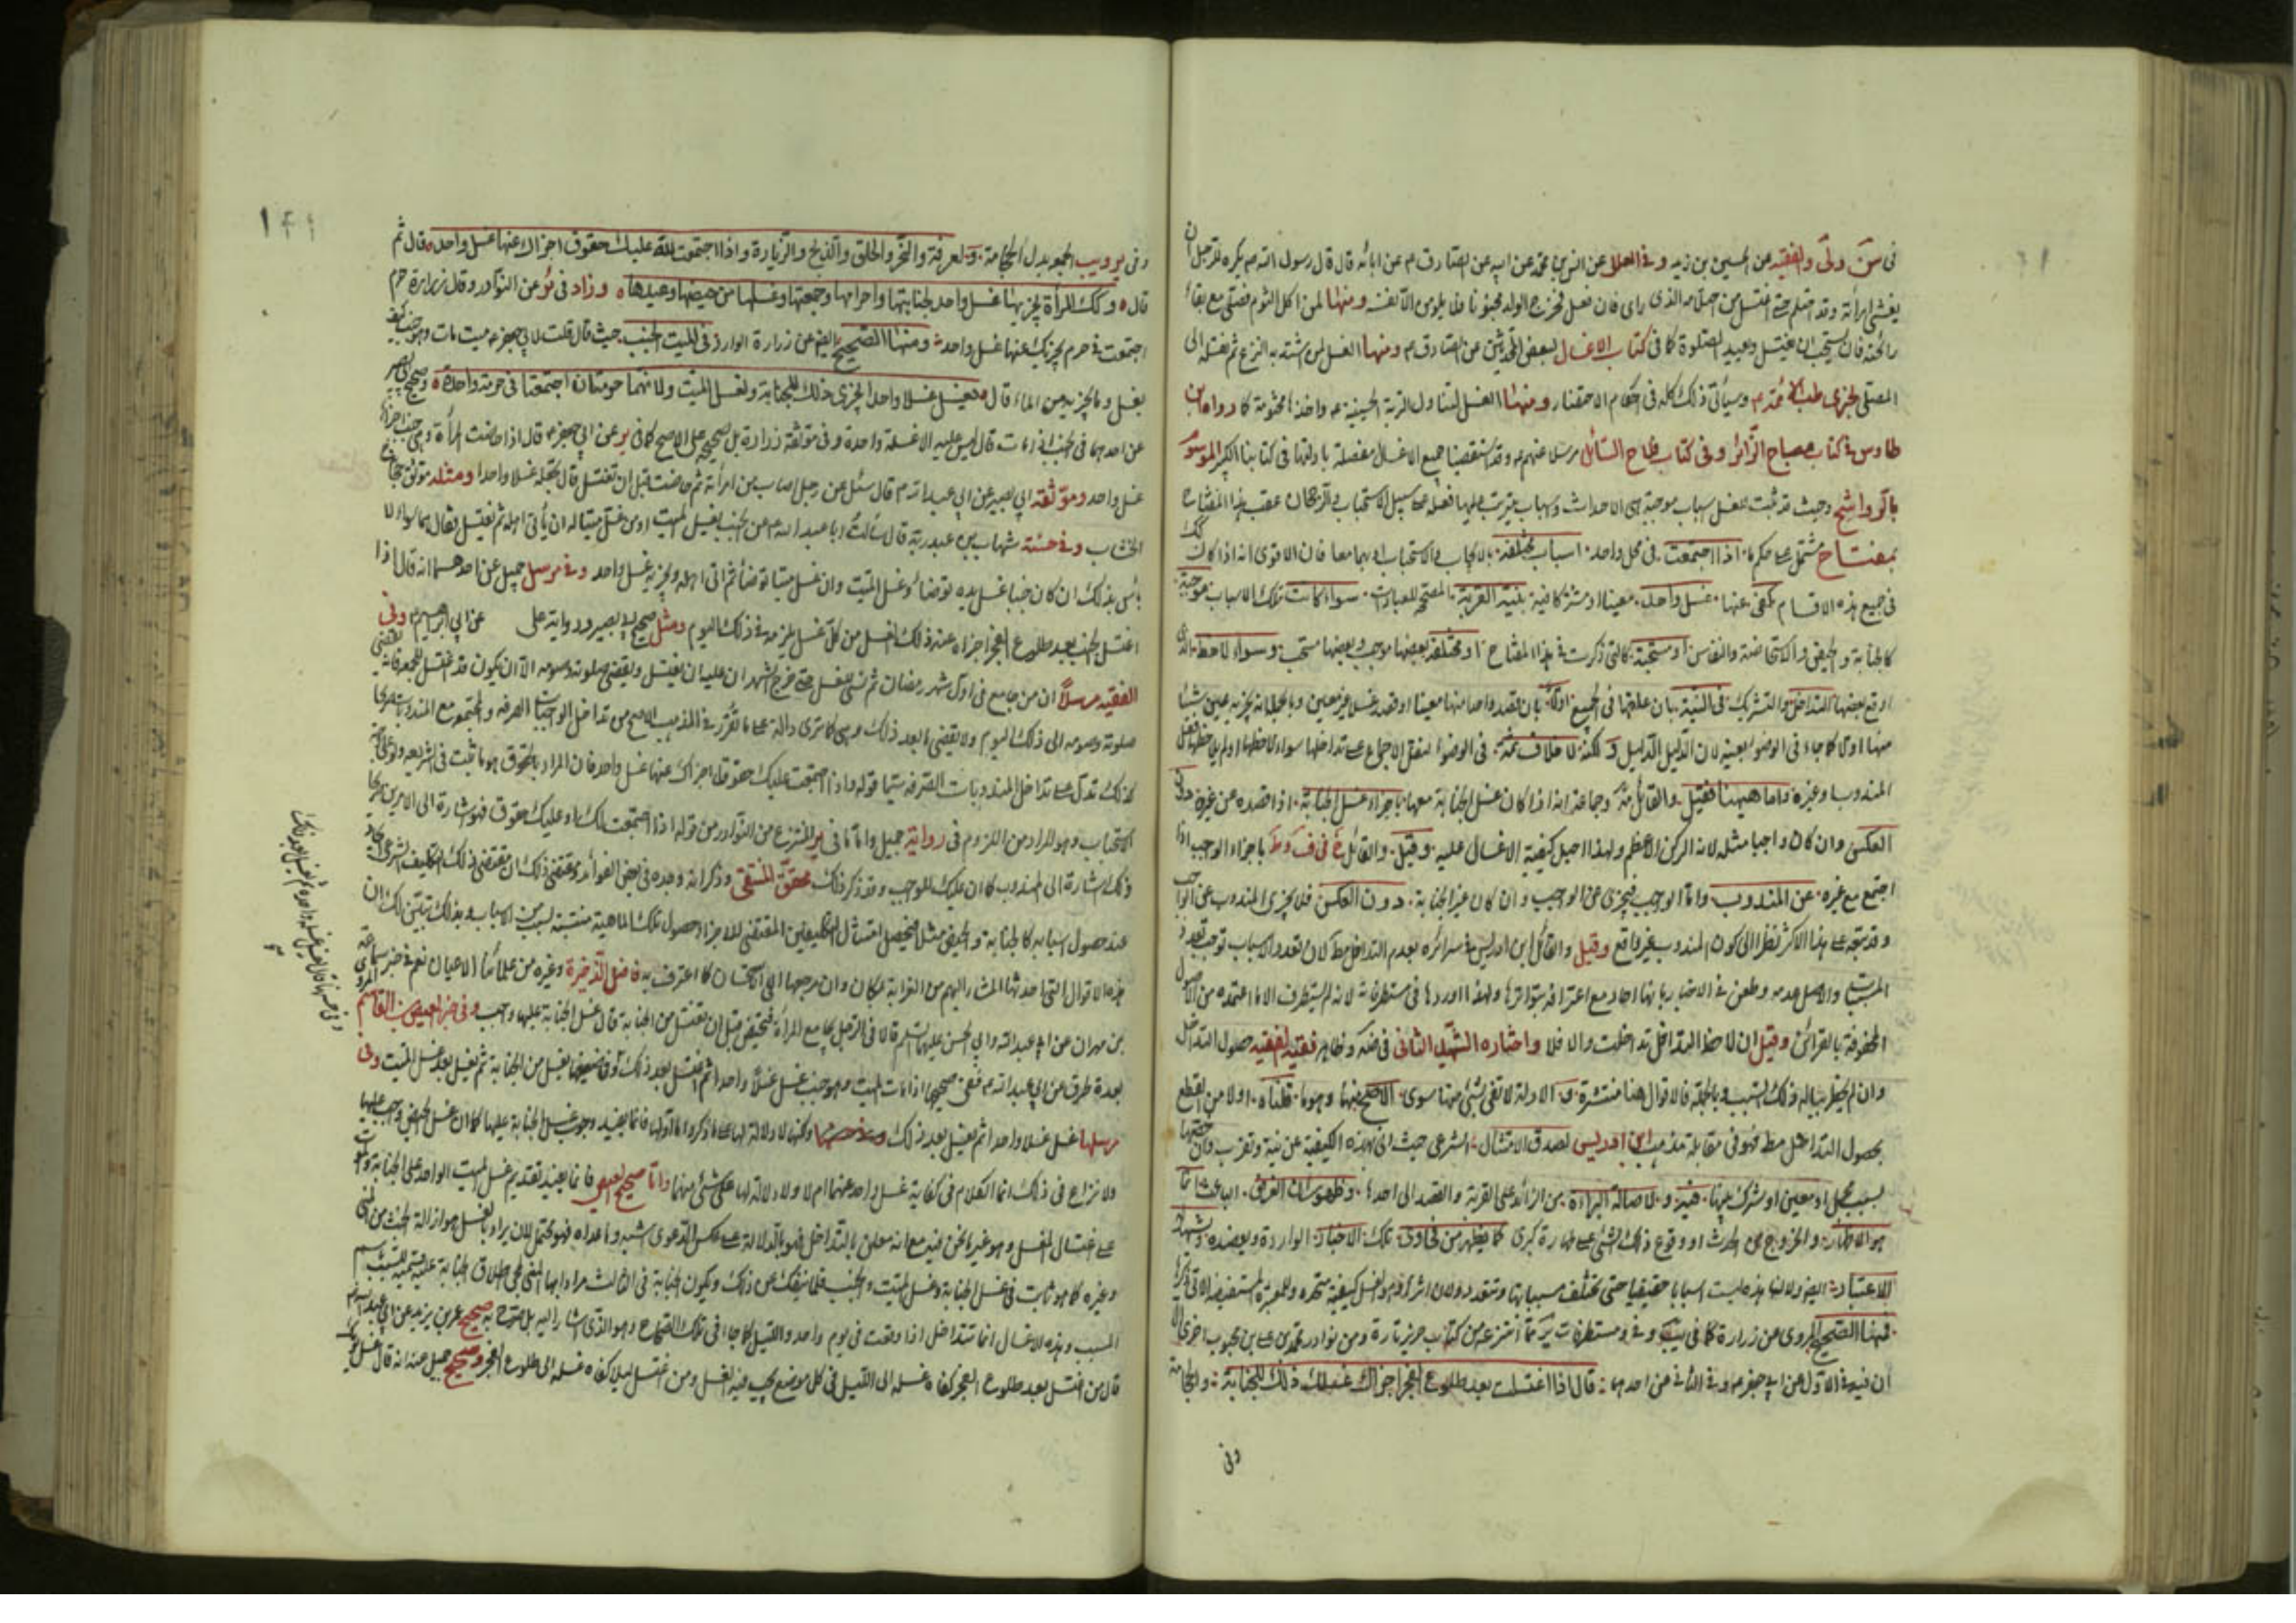 في من ولى والفقيه عن الحسين بن زيد وفي العلل عن محمد عن ابيه عن الصادق عن ابائه قال قال رسول الله يكره للرجل ان
يغشى امرأته وقد احتلم حتى يغتسل من احتلامه الذي راى فان فعل فخرج الولد مجنونا فلا يلومن الا نفسه ومنها لمن اكل الثوم فصلى مع بقاء
رائحته فان يستحب ان يغتسل ويعيد الصلوة كما في كتاب الاغسال لبعض المحدثين عن الصادق ومنها الغسل لمن اشتد به النزع ثم نقله الى
المصلى وسيأتي ذلك كله في احكام الاحتضار ومنها الغسل لتناول التربة الحسينية واخذها مختومة كما رواه ابن
طاوس في كتاب مصباح الزائر وفي كتاب فلاح السائل مرسلا عنهم وقد استقصينا جميع الاغسال مفصلة بادلتها في كتابنا الكبير الموسوم
بالرواشح وحيث قد ثبت للغسل اسباب موجبة هي الاحداث واسباب يترتب عليها فعله على سبيل الاستحباب عقب هذا المفتاح
بمفتاح مشتمل على حكم اذا اجتمعت في محل واحد اسباب مختلفة بالايجاب والاستحباب او بهما معا فان الاقوى انه اذا كان كك
في جميع هذه الاقسام يكفي عنها غسل واحد معينا او مشتركا فيه بنية القربة المصححة للعبادات سواء كانت تلك الاسباب موجبة
كالجنابة والحيض والاستحاضة والنفاس او مستحبة كالتي ذكرت في هذا المفتاح او مختلفة بعضها موجب وبعضها مستحب وسواء لاحظ الذي
اوقع بعضها التداخل والتشريك في النية بان علقها في الجميع اولا بان قصد واحدا منها معينا او قصد غسلا غير معين وبالجملة يجزيه عن شاء
منها اولا كما جاء في الوضوء بعينه لان الدليل الدليل و لكنه لا خلاف ثمة في الوضوء لنقل الاجماع على تداخلها سواء لاحظها او لم يلاحظها
المندوب وغيره واما هيهنا فقيل والقائل وجماعة انه اذا كان غسل الجنابة معها باجزاء غسل الجنابة اذا قصده عن غيره دون
العكس وان كان واجبا مثله لانه الركن الاعظم ولهذا احيل كيفية الاغسال عليه وقيل والقائل خ في ف و ط باجزاء الواجب اذا
اجتمع مع غيره عن المندوب واما الواجب فيجزي عن الواجب وان كان غير الجنابة دون العكس فلا يجزي المندوب عن الواجب
هذا الاكثر نظرا الى كون المندوب غير واقع وقيل والقائل ابن ادريس في سرائره بعدم التداخل مط لان تعدد الاسباب توجب تعدد
المسببات والاصل عدمه وطعن في الاخبار بانها احاد مع اعترافه بتواترها ولهذا اوردها في مستطرفاته لانه لم يستطرف الا ما اعتمده من الاصول
المحفوفة بالقرائن وقيل ان لاحظ التداخل تداخلت والا فلا واختاره الشهيد الثاني في ضه وظاهر الفقيه حصول التداخل
وان لم يخطر بباله ذلك السبب وبالجملة فالاقوال هنا منتشرة و الادلة لا تفي بشيء منها سوى الاصح منها وهو ما قلناه اولا من القطع
بحصول التداخل مط فهو في مقابلة مذهب ابن ادريس لصدق الامتثال الشرعي حيث اتى بهذه الكيفية عن نية وتقرب وان خصها
بسبب مجمل او معين او شرك بينها فيه و لاصالة البراءة من الزائد على القربة والقصد الى احدها وظهور شان الغرض الباعث انما
هو الاظهار والخروج عن الحدث او وقوع ذلك الشيء على طهارة كبرى كما يظهر من فحاوى تلك الاخبار الواردة ويعضده ويشهد له
الاعتبار ايضا ولانها هذه ليست اسبابا حقيقيا حتى تختلف مسبباتها وتتعدد ولان اشراكهما والغسل كيفية متحدة وللمعتبرة المستفيضة الاتي ذكرها
فمنها الصحيح المروي عن زرارة كما في يب وفي مستطرفات ئر مما انتزعه من كتاب حريز تارة ومن نوادر محمد بن علي بن محبوب اخرى الا
ان فيه في الاول عن ابي جعفر وفي الثاني عن احدهما قال اذا اغتسلت بعد طلوع الفجر اجزاك غسلك ذلك للجنابة والحجامة
وفي
وفي ئر ويب الجمعة بدل الحجامة وعرفة والنحر والحلق والذبح والزيارة واذا اجتمعت لله عليك حقوق اجزأك عنها غسل واحد قال ثم
قال وكك المرأة يجزيها غسل واحد لجنابتها واحرامها وجمعتها وغسلها من حيضها وعيدها وزاد في ئر عن النوادر وقال زرارة حرم
اجتمعت في حرم يجزيك عنها غسل واحد ومنها الصحيح ايضا عن زرارة الوارد في الميت الجنب حيث قال قلت لابي جعفر ميت مات وهو جنب كيف
يغسل وما يجزيه من الماء قال يغسل غسلا واحدا يجزي ذلك للجنابة ولغسل الميت ولانهما حرمتان اجتمعتا في حرمة واحدة وصحيح ابي بصير
عن احدهما في الجنب اذا مات قال ليس عليه الا غسلة واحدة وفي موثقة زرارة بل صحيحه على الاصح كما في ئر عن ابي جعفر قال اذا حاضت المرأة وهي جنب اجزأها
غسل واحد وموثقة ابي بصير عن ابي عبد الله قال سئل عن رجل اصاب من امرأته ثم حاضت قبل ان تغتسل قال تجعله غسلا واحدا ومثله موثق حجاج
الخشاب وفي حسنة شهاب بن عبد ربه قال سألت ابا عبد الله عن الجنب يغسل الميت او من غسل ميتا له ان يأتي اهله ثم يغتسل فقال هما سواء لا
بأس بذلك ان كان جنبا غسل يديه توضأ وغسل الميت وان غسل ميتا توضأ ثم اتى اهله ويجزيه غسل واحد وفي مرسل جميل عن احدهما انه قال اذا
اغتسل الجنب بعد طلوع الفجر اجزأه عنه ذلك الغسل من كل غسل يلزمه في ذلك اليوم ومثل صحيح ابي بصير ورواية علي عن ابي ابراهيم وفي
الفقيه مرسلا ان من جامع في اول شهر رمضان ثم نسي الغسل حتى خرج الشهر ان عليه ان يغتسل ويقضي صلوته وصومه الا ان يكون قد اغتسل للجمعة فانه يقضي
صلوته وصومه الى ذلك اليوم ولا يقضي ما بعد ذلك وهي كما ترى دالة على ما تقرر في المذهب الاصح من تداخل الواجبات الصرفة والمجتمعة مع المندوبات
كذلك تدل على تداخل المندوبات الصرفة سيما قوله واذا اجتمعت عليك حقوق اجزأك عنها غسل واحد فان المراد بالحقوق هو ما ثبت في الشريعة ولو على
الاستحباب وهو المراد من اللزوم في رواية جميل واما ما في ئر المنتزع من النوادر من قوله اذا اجتمعت لك او عليك حقوق فهو اشارة الى الامرين
ذلك اشارة الى المندوب كما ان عليك للواجب وقد ذكر ذلك محقق المنتقى وذكر انه وجده في بعض الفوائد ومقتضى ذلك ان مقتضى ذلك التكليف الشرعي
عند حصول اسبابه كالجنابة والحيض مثلا فيحصل امتثال التكليفين المقتضي للاجزاء حصول تلك الماهية منتسبة لسبب من الاسباب وبذلك تبين لك ان
هذه الاقوال التي احدثها المشار اليهم من الغرابة بمكان وان مرجعها الى الاستحسان كما اعترف به فاضل الذخيرة وغيره من علمائنا الاعيان نعم في خبر سماعة
بن مهران عن ابي عبد الله وابي الحسن عليهما السلم قالا في الرجل يجامع المرأة فتحيض قبل ان تغتسل من الجنابة قال غسل الجنابة عليها واجب وفي خبر العيص بن القاسم
بعدة طرق عن ابي عبد الله ففي صحيحها اذا مات الميت وهو جنب غسل غسلا واحدا ثم اغتسل بعد ذلك وفي بعضها يغسل من الجنابة ثم يغسل بعد غسل الميت وفي
مرسلها غسل غسلا واحدا ثم يغسل بعد ذلك ولكنها لا دلالة لها على ما ذكروه اما اولها فانما يفيد وجوب غسل الجنابة عليها كما ان غسل الحيض واجب عليها
ولا نزاع في ذلك انما الكلام في كفاية غسل واحد عنهما ام لا ولا دلالة لها على شيء منهما واما صحيح العيص فانما يفيد تقديم غسل الميت الواحد على الجنابة
على اغتسال المغسل وهو غير ما نحن فيه مع انه معلن بالتداخل فهو بالدلالة على عكس الدعوى اشبه وما عداه فهو محتمل لان يراد بالغسل هو ازالة الخبث من المني
وغيره كما هو ثابت في غسل الجنابة وغسل الميت والجنب قلما ينفك عن ذلك ويكون الجنابة في الثالث مرادا بها المني فيجيء اطلاق الجنابة عليه تسمية للسبب باسم
المسبب وهذه الاغسال انما تتداخل اذا وقعت في يوم واحد والليل كما جاء في تلك الصحاح وهو الذي اشار اليه بل صرح به صحيح عمر بن يزيد عن ابي عبد الله
قال من اغتسل بعد طلوع الفجر كفاه غسله الى الليل في كل موضع يجب فيه الغسل ومن اغتسل ليلا كفاه غسله الى طلوع الفجر وصحيح جميل عنه انه قال غسل يومك